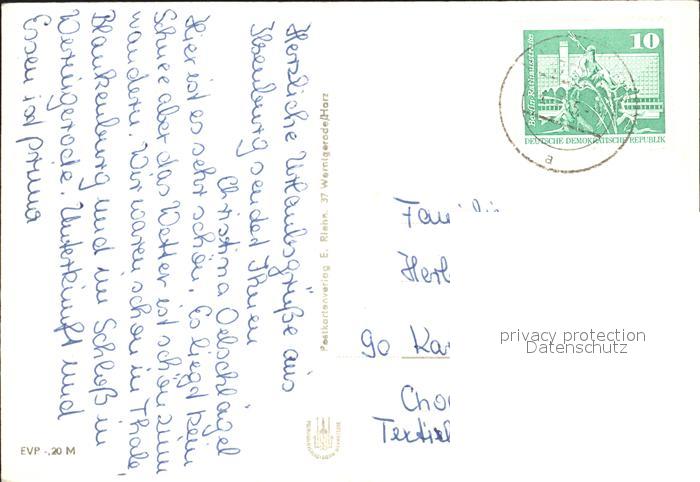 Herzliche Urlaubsgrüße aus
Ilsenburg sendet Ihnen
Christina Oelschlägel
Hier ist es sehr schön. Es liegt kein
Schnee aber das Wetter ist schön zum
wandern. Wir waren schon in Thale,
Blankenburg und im Schloß in
Wernigerode. Unterkunft und
Essen ist prima
EVP -,20 M
Postkartenverlag E. Riehn, 37 Wernigerode/Harz
Berlin, Rathausstraße
10
DEUTSCHE DEMOKRATISCHE REPUBLIK
a
Fam
Herb
90 Kar
privacy protection
Datenschutz
Textil